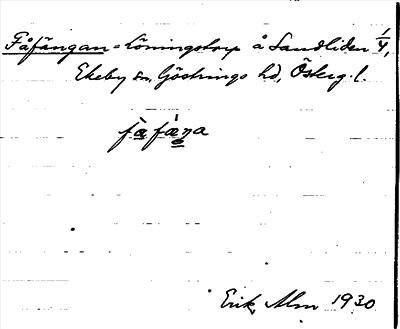 Fåfängan = Lösningstorp å Sandliden 1/4,
Ekeby sn, Göstrings hd, Österg. l.
fàfáŋa
Erik Alm 1930